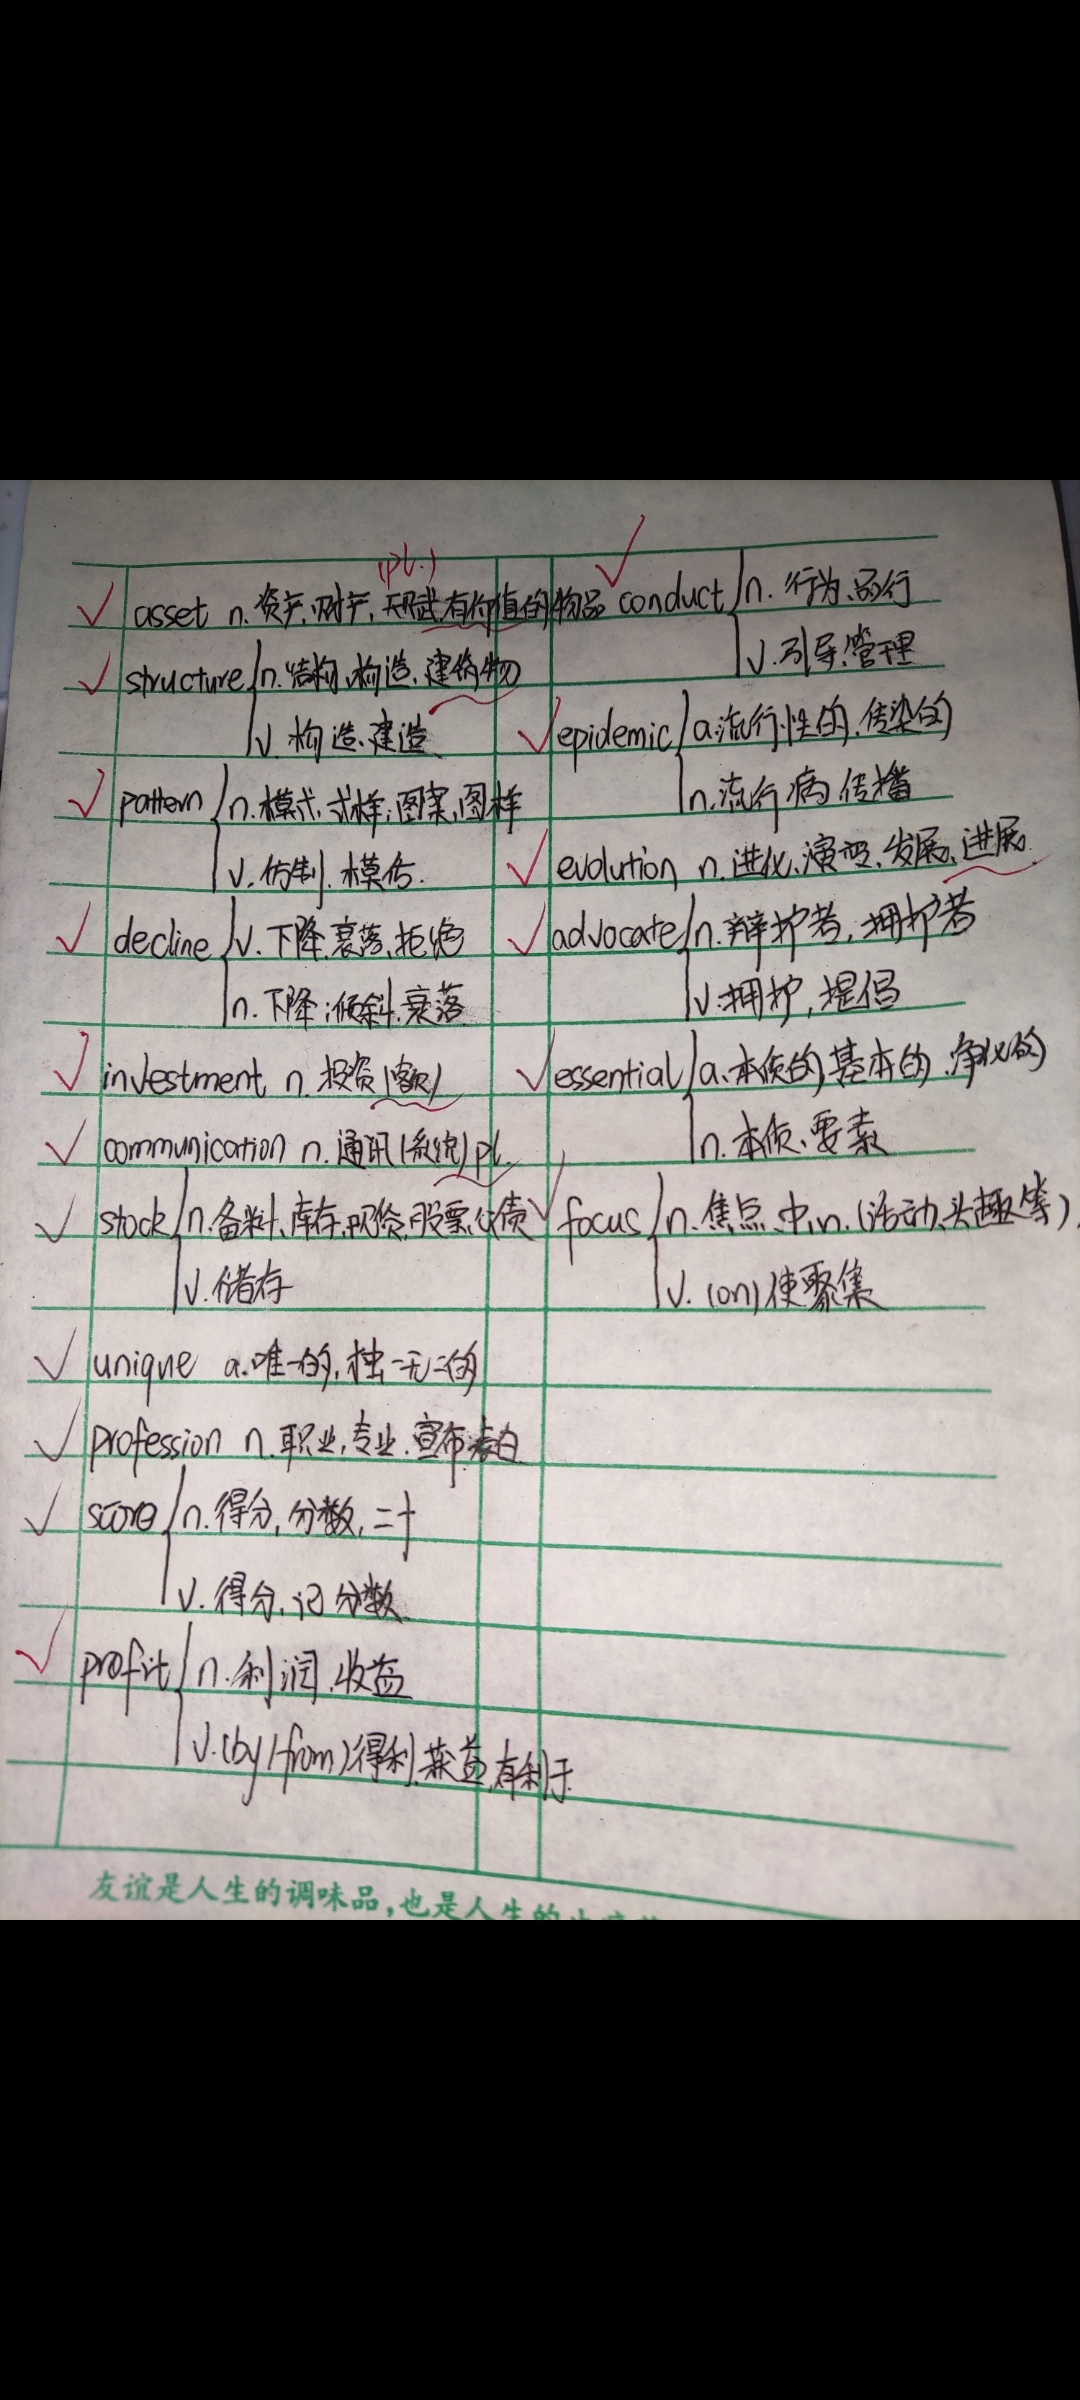 (pl.)
asset n. 资产,财产,天赋,有价值的物品
structure n.结构,构造,建筑物
v.构造,建造
pattern n.模式,式样;图案,图样
v.仿制,模仿.
decline v.下降,衰落,拒绝
n.下降;倾斜,衰落
investment n.投资(额)
communication n.通讯(系统)pl.
stock n.备料,库存,现货,股票,公债
v.储存
unique a.唯一的,独一无二的
profession n.职业,专业,宣布,表白
score n.得分,分数,二十
v.得分,记分数
profit n.利润,收益
v.(by/from)得利,获益,有利于
conduct n.行为,品行
v.引导,管理
epidemic a.流行性的,传染的
n.流行病,传播
evolution n.进化,演变,发展,进展
advocate n.辩护者,拥护者
v.拥护,提倡
essential a.本质的,基本的,净化的
n.本质,要素
focus n.焦点,中心(活动、头趣等)
v.(on)使聚集
友谊是人生的调味品,也是人生的止